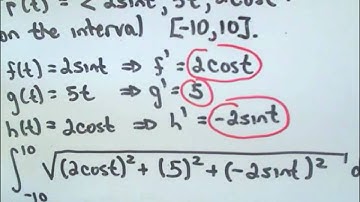 r(t) = < 2sint, 5t, 2cost
on the interval [-10,10].
f(t) = 2sint ⇒ f' = 2cost
g(t) = 5t ⇒ g' = 5
h(t) = 2cost ⇒ h' = -2sint
∫₋₁₀¹⁰ √(2cost)² + (5)² + (-2sint)² d